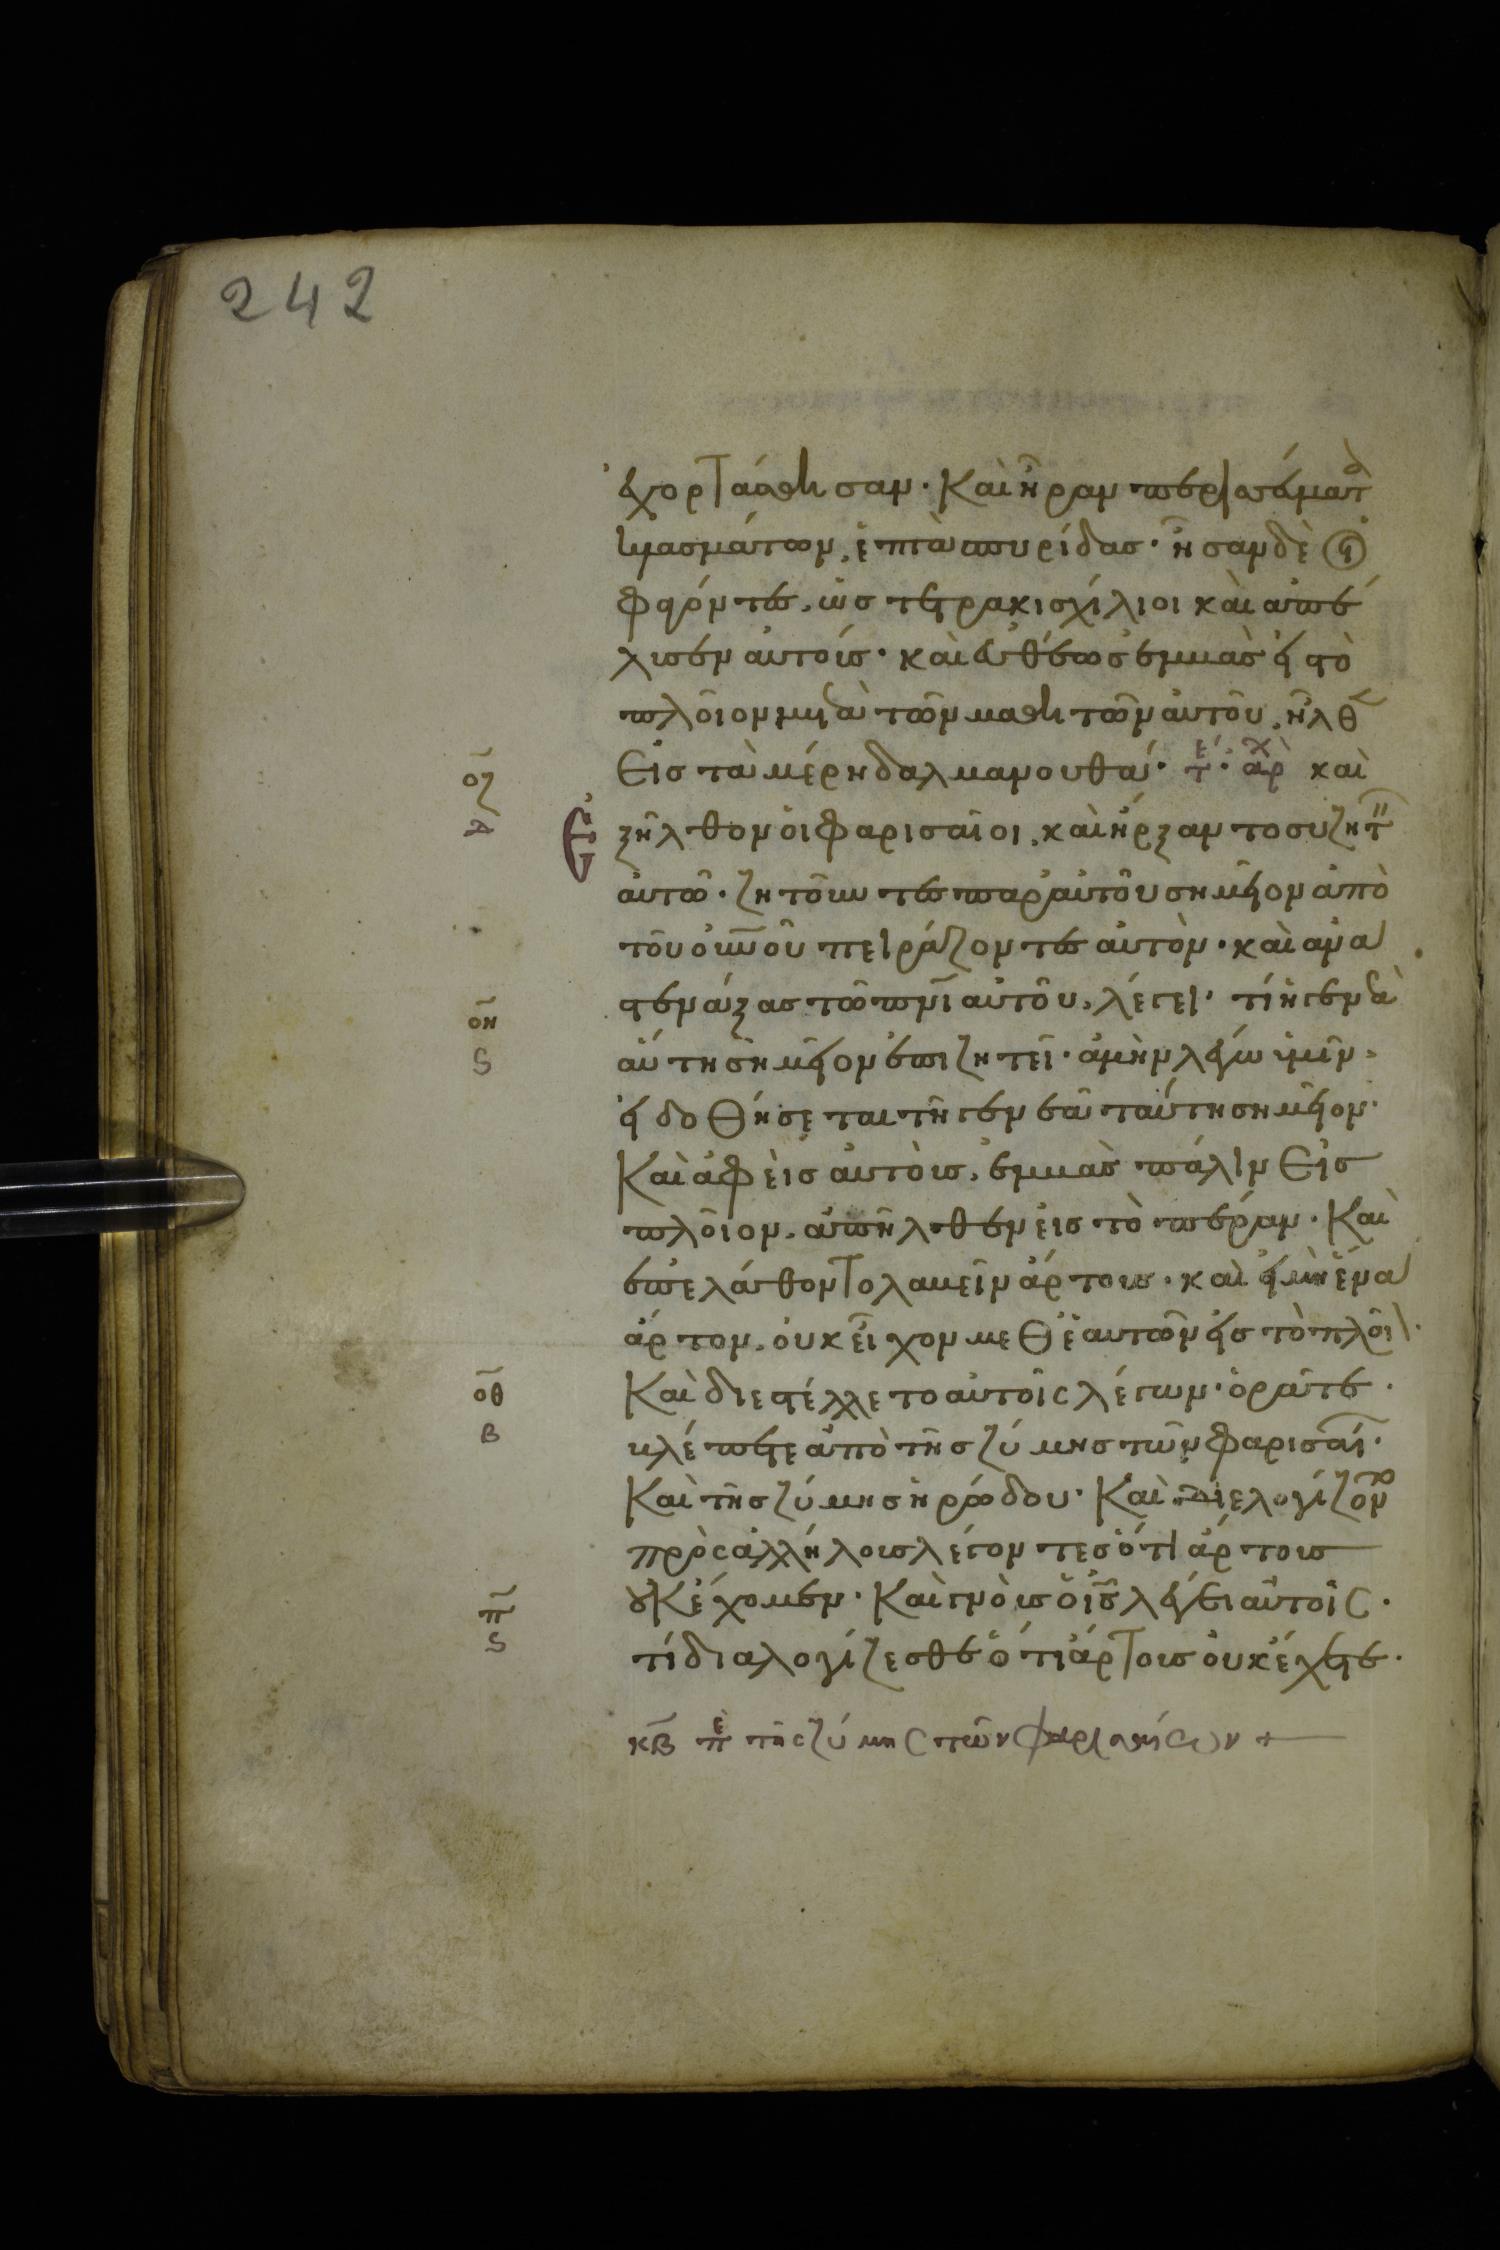 242
ἐχορτάσθησαν. Καὶ ἦραν περισσεύματ
κλασμάτων, ἑπτὰ σπυρίδας. ἦσαν δὲ οἱ
φαγόντες, ὡς τετρακισχίλιοι καὶ ἀπέ
λυσεν αὐτούς. καὶ εὐθέως ἐμβὰς εἰς τὸ
πλοῖον μετὰ τῶν μαθητῶν αὐτοῦ, ἦλθ
Εἰς τὰ μέρη δαλμανουθά. τε. ἀρχ καὶ
οζ
δ
Ἐξῆλθον οἱ φαρισαῖοι, καὶ ἤρξαντο συζητ
αὐτῶ. ζητοῦντες παρ' αὐτοῦ σημεῖον ἀπὸ
τοῦ οὐνοῦ πειράζοντες αὐτὸν. καὶ ἀνα
στενάξας τῶ πνι αὐτοῦ, λέγει. τί ἡ γενεὰ
οη
ς
αὕτη σημεῖον ἐπιζητεῖ. ἀμὴν λέγω ὑμῖν,
εἰ δοθήσεται τῆ γενεᾶ ταύτη σημεῖον.
Καὶ ἀφεὶς αὐτοὺς, ἐμβὰς πάλιν Εἰς
πλοῖον, ἀπῆλθεν εἰς τὸ πέραν. Καὶ
ἐπελάθοντο λαβεῖν ἄρτους. καὶ εἰ μὴ ἕνα
ἄρτον, οὐκ εἶχον μεθ' ἑαυτῶν εἰς τὸ πλοῖ.
οθ
β
Καὶ διεστέλλετο αὐτοῖς λέγων. ὁρᾶτε.
βλέπετε ἀπὸ τῆς ζύμης τῶν φαρισαί.
Καὶ τῆς ζύμης ἡρώδου. Καὶ διελογίζοντο
πρὸς ἀλλήλους λέγοντες ὅτι ἄρτους
π
ς
οὐκ ἔχομεν. Καὶ γνοὺς ὁ ις λέγει αὐτοῖς.
τί διαλογίζεσθε ὅτι ἄρτους οὐκ ἔχετε.
κβ πε τῆς ζύμης τῶν φαρισαίων +